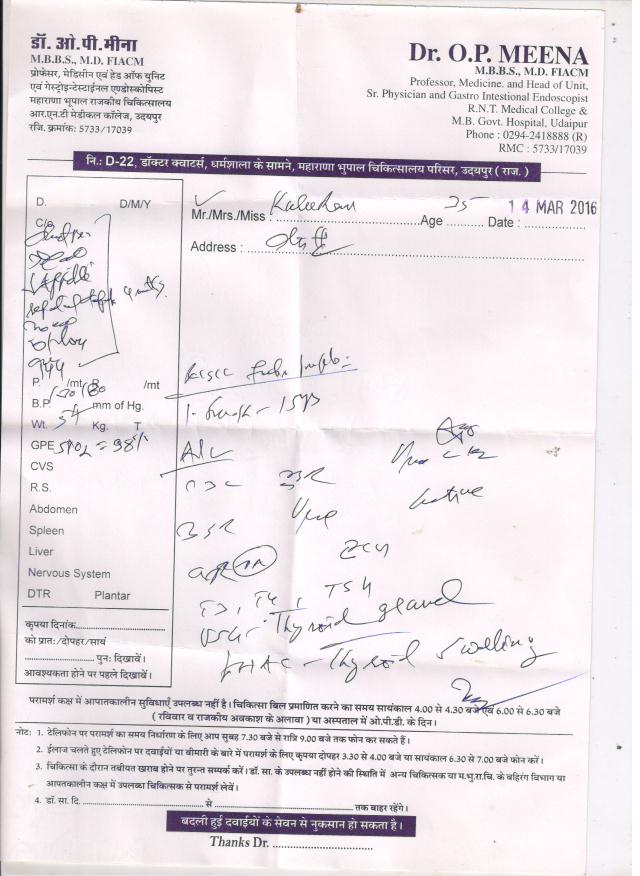 डॉ. ओ.पी.मीना
M.B.B.S., M.D. FIACM
प्रोफेसर, मेडिसीन एवं हेड ऑफ युनिट
एवं गेस्ट्रोइन्टेस्टाईनल एण्डोस्कोपिस्ट
महाराणा भूपाल राजकीय चिकित्सालय
आर.एन.टी मेडीकल कॉलेज, उदयपुर
रजि. क्रमांक: 5733/17039
Dr. O.P. MEENA
M.B.B.S., M.D. FIACM
Professor, Medicine. and Head of Unit,
Sr. Physician and Gastro Intestional Endoscopist
R.N.T. Medical College &
M.B. Govt. Hospital, Udaipur
Phone : 0294-2418888 (R)
RMC : 5733/17039
नि.: D-22, डॉक्टर क्वाटर्स, धर्मशाला के सामने, महाराणा भुपाल चिकित्सालय परिसर, उदयपुर ( राज. )
Mr./Mrs./Miss : Age 35 Date : 14 MAR 2016
Address :
D. D/M/Y
C/o
P. /mt R /mt
B.P. mm of Hg.
Wt. 54 Kg. T
GPE SPO2 = 98%
CVS
R.S.
Abdomen
Spleen
Liver
Nervous System
DTR Plantar
कृपया दिनांक
को प्रात:/दोपहर/सायं
पुन: दिखावें।
आवश्यकता होने पर पहले दिखावें।
T3, T4, TSH
USG - Thyroid gland
FNAC - Thyroid swelling
परामर्श कक्ष में आपातकालीन सुविधाएँ उपलब्ध नहीं है। चिकित्सा बिल प्रमाणित करने का समय सायंकाल 4.00 से 4.30 बजे एवं 6.00 से 6.30 बजे
( रविवार व राजकीय अवकाश के अलावा ) या अस्पताल में ओ.पी.डी. के दिन।
नोट: 1. टेलिफोन पर परामर्श का समय निर्धारण के लिए आप सुबह 7.30 बजे से रात्रि 9.00 बजे तक फोन कर सकते हैं।
2. ईलाज चलते हुए टेलिफोन पर दवाईयों या बीमारी के बारे में परामर्श के लिए कृपया दोपहर 3.30 से 4.00 बजे या सायंकाल 6.30 से 7.00 बजे फोन करें।
3. चिकित्सा के दौरान तबीयत खराब होने पर तुरन्त सम्पर्क करें। डॉ. सा. के उपलब्ध नहीं होने की स्थिति में अन्य चिकित्सक या म.भु.रा.चि. के बहिरंग विभाग या
आपतकालीन कक्ष में उपलब्ध चिकित्सक से परामर्श लेवें।
4. डॉ. सा. दि. से तक बाहर रहेंगे।
बदली हुई दवाईयों के सेवन से नुकसान हो सकता है।
Thanks Dr.